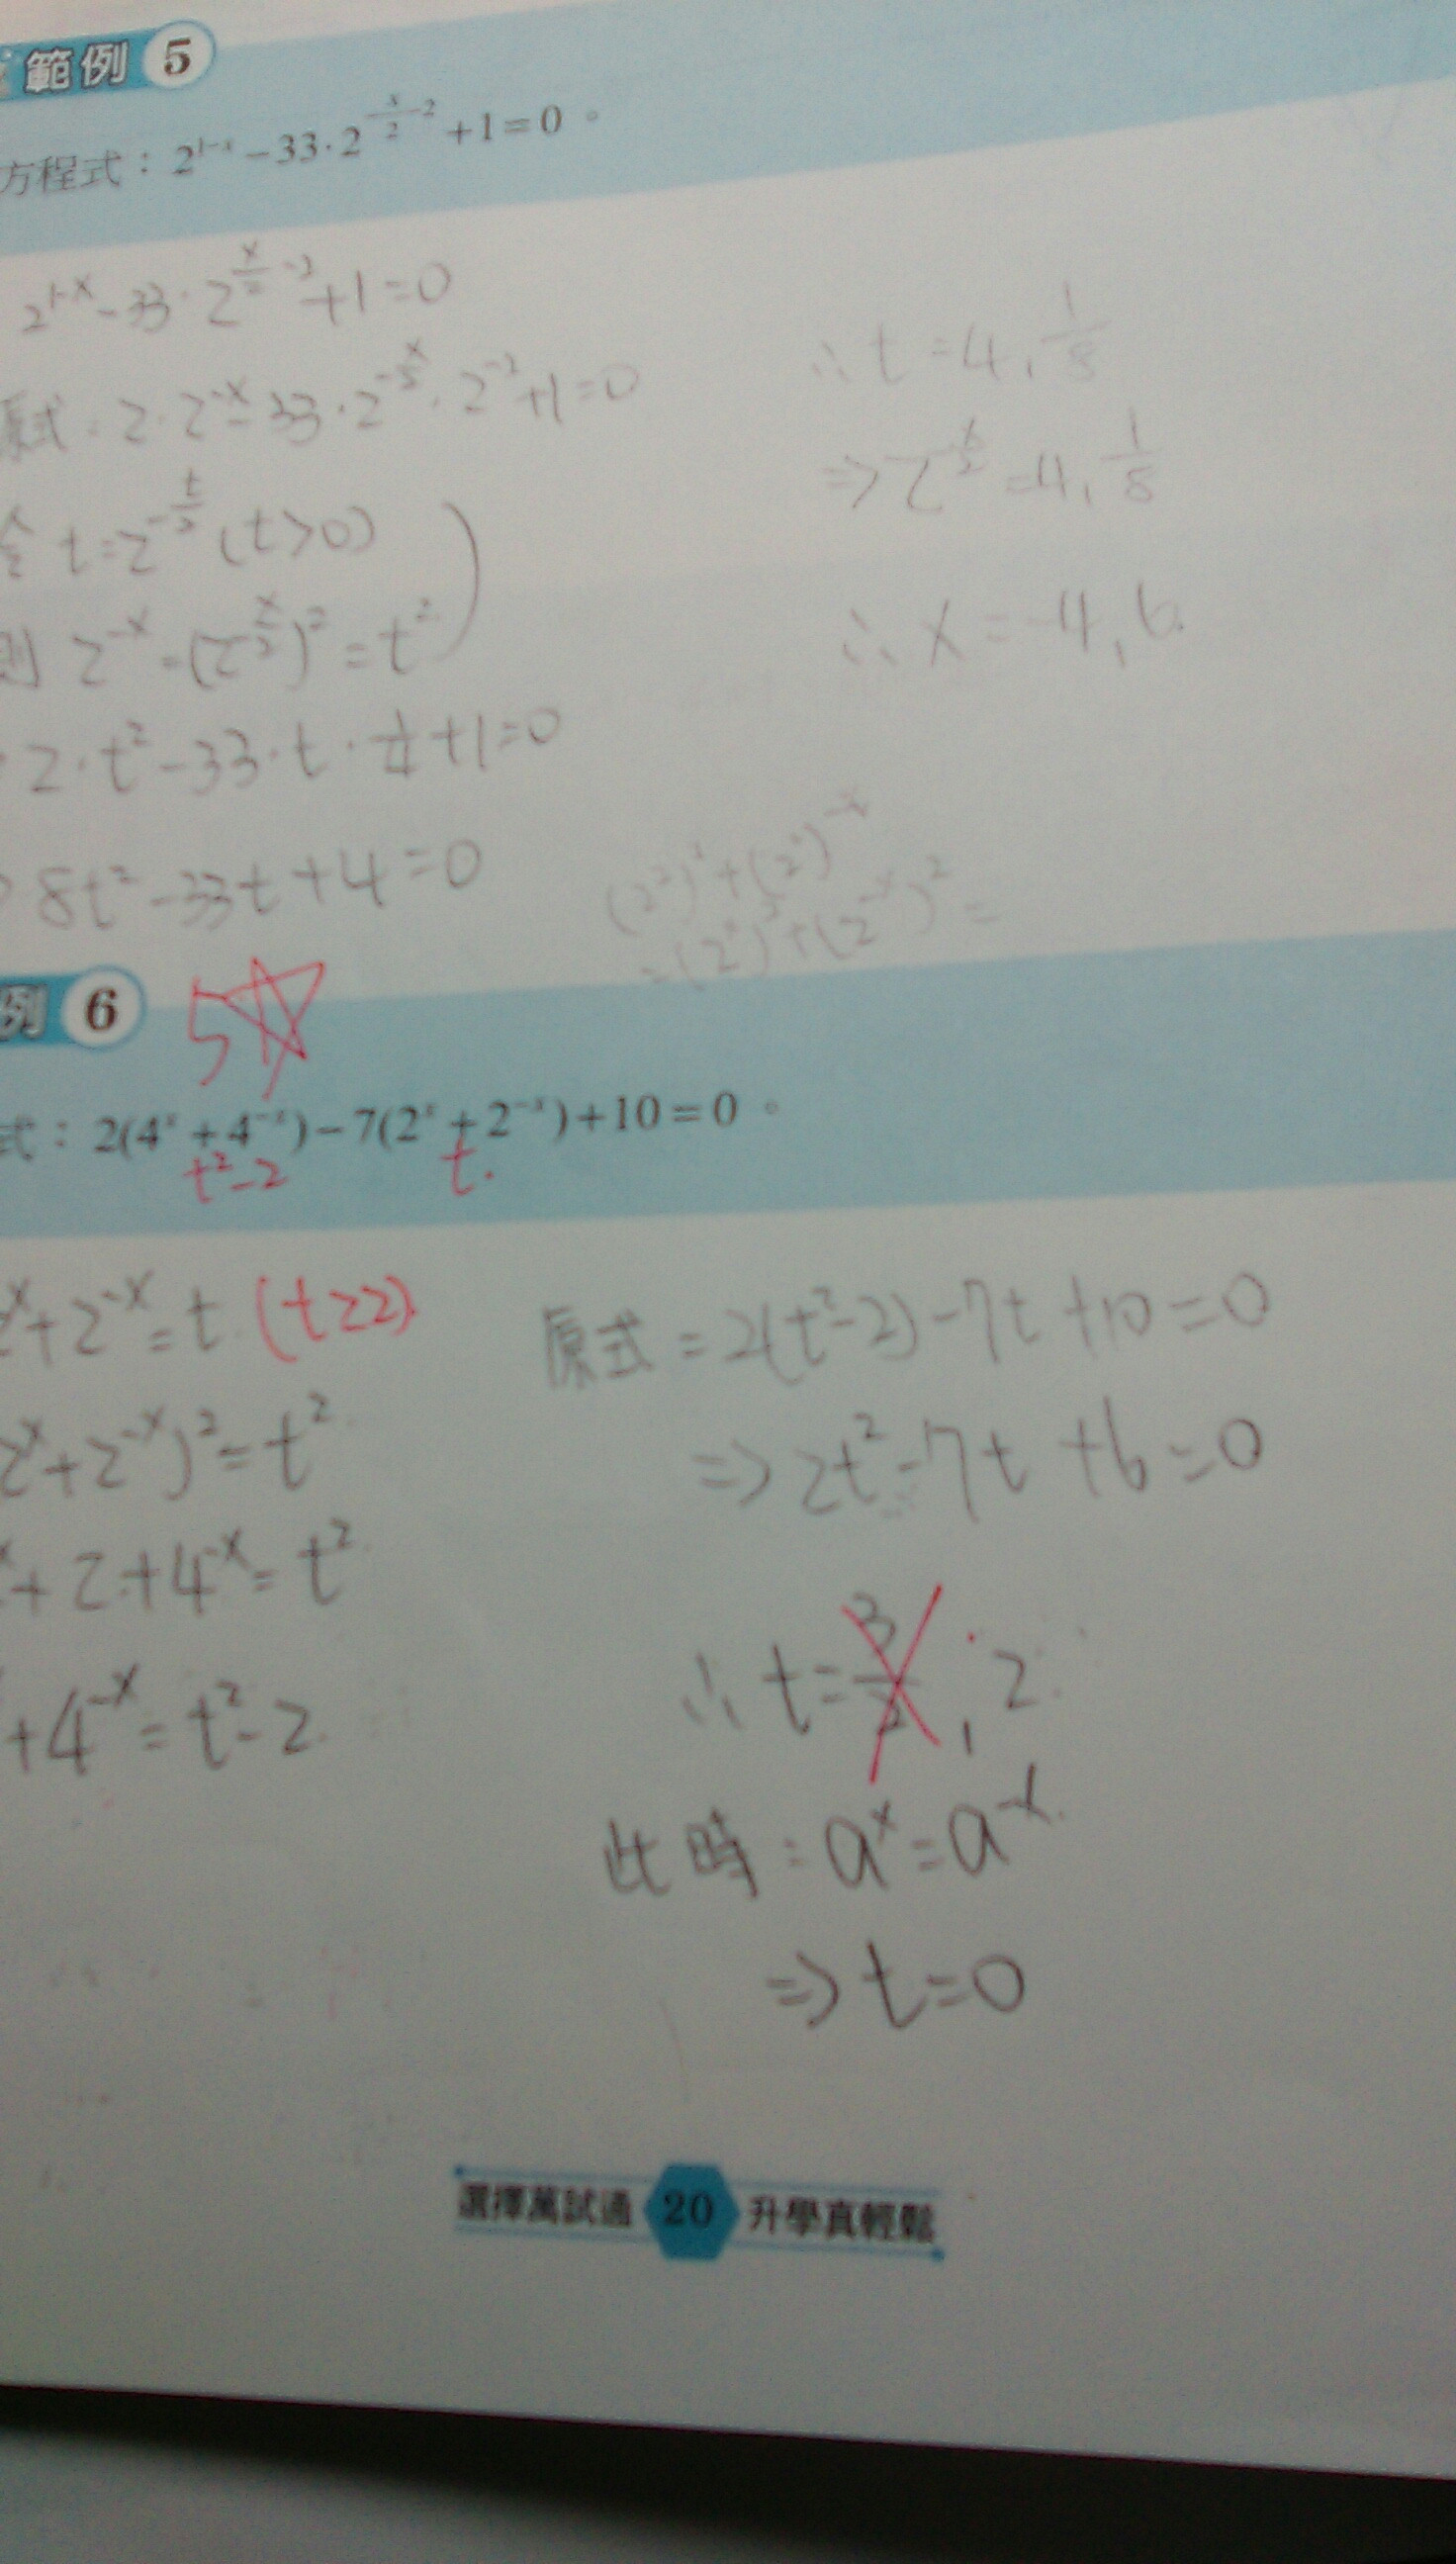 範例 5
方程式：2^{1-x} - 33·2^{-\frac{x}{2}-2} + 1 = 0。
2^{1-x} - 33·2^{\frac{x}{2}-2} + 1 = 0
原式：2·2^{-x} - 33·2^{-\frac{x}{2}}·2^{-2} + 1 = 0
令 t = 2^{-\frac{t}{2}} (t>0)
則 2^{-x} = (2^{-\frac{x}{2}})^2 = t^2
2·t^2 - 33·t·\frac{1}{4} + 1 = 0
8t^2 - 33t + 4 = 0
∴ t = 4, \frac{1}{8}
⇒ 2^{-\frac{x}{2}} = 4, \frac{1}{8}
∴ x = -4, 6.
(2^2)^x + (2^2)^{-x}
= (2^x)^2 + (2^{-x})^2 =
例 6
5☆
式：2(4^x + 4^{-x}) - 7(2^x + 2^{-x}) + 10 = 0。
t^2-2 t.
2^x + 2^{-x} = t. (t≥2)
2^x + 2^{-x})^2 = t^2.
x + 2 + 4^{-x} = t^2.
+ 4^{-x} = t^2 - 2.
原式 = 2(t^2-2) - 7t + 10 = 0
⇒ 2t^2 - 7t + 6 = 0
∴ t = \frac{3}{2}, 2.
此時：a^x = a^{-x}.
⇒ t = 0
選擇萬試通 20 升學真輕鬆